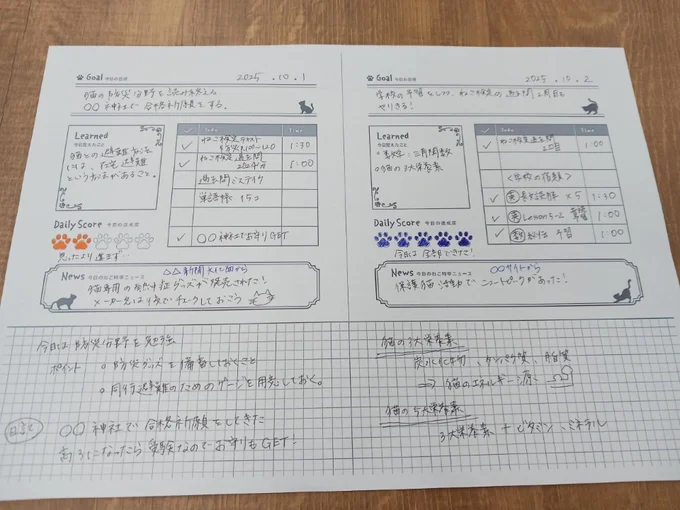 Goal 今日の目標 2025.10.1
猫の防災分野を読み終える
〇〇神社で合格祈願をする。
Learned
今日覚えたこと
猫との避難方法
には、在宅避難
というものがあること。
Todo Time
✓ ねこ検定テキスト 1:30
✓ ねこ検定過去問 1:00
過去問ミステイク
単語帳 15コ
✓ 〇〇神社でお守りGET
Daily Score 今日の達成度
思ったより進まず…
News 今日のねこ時事ニュース △△新聞
猫専用の グッズが発売された!
メーカー名は後でチェックしておこう
今日は防災分野を勉強
ポイント 。防災グッズを備蓄しておくこと
。同行避難のためのケージを用意しておく。
〇〇神社で合格祈願をしてきた
受験なのでお守りもGET!
Goal 今日の目標 2025.10.2
学校の予習をしつつ、ねこ検定の過去問2回目も
やりきる!
Learned
今日覚えたこと
。数学:三角関数
。猫の3大栄養素
Todo Time
✓ ねこ検定過去問 1:00
2回目
<学校の宿題>
✓ 英 長文読解 ×5 1:30
✓ 英 Lesson3-2 予習 1:00
✓ 予習 1:00
Daily Score 今日の達成度
今日は全部できた!
News 今日のねこ時事ニュース 〇〇サイトから
保護猫活動でニュートピークがあった!
猫の3大栄養素
炭水化物、タンパク質、脂質
⇒ 猫のエネルギー源
猫の5大栄養素
3大栄養素 + ビタミン、ミネラル